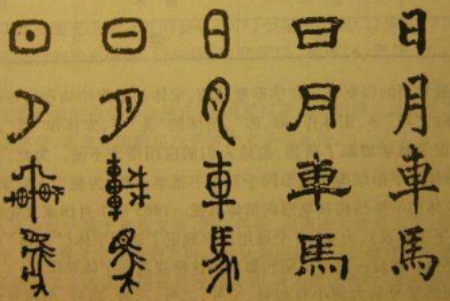 日 日 日 日 日
月 月 月 月 月
車 車 車 車 車
馬 馬 馬 馬 馬